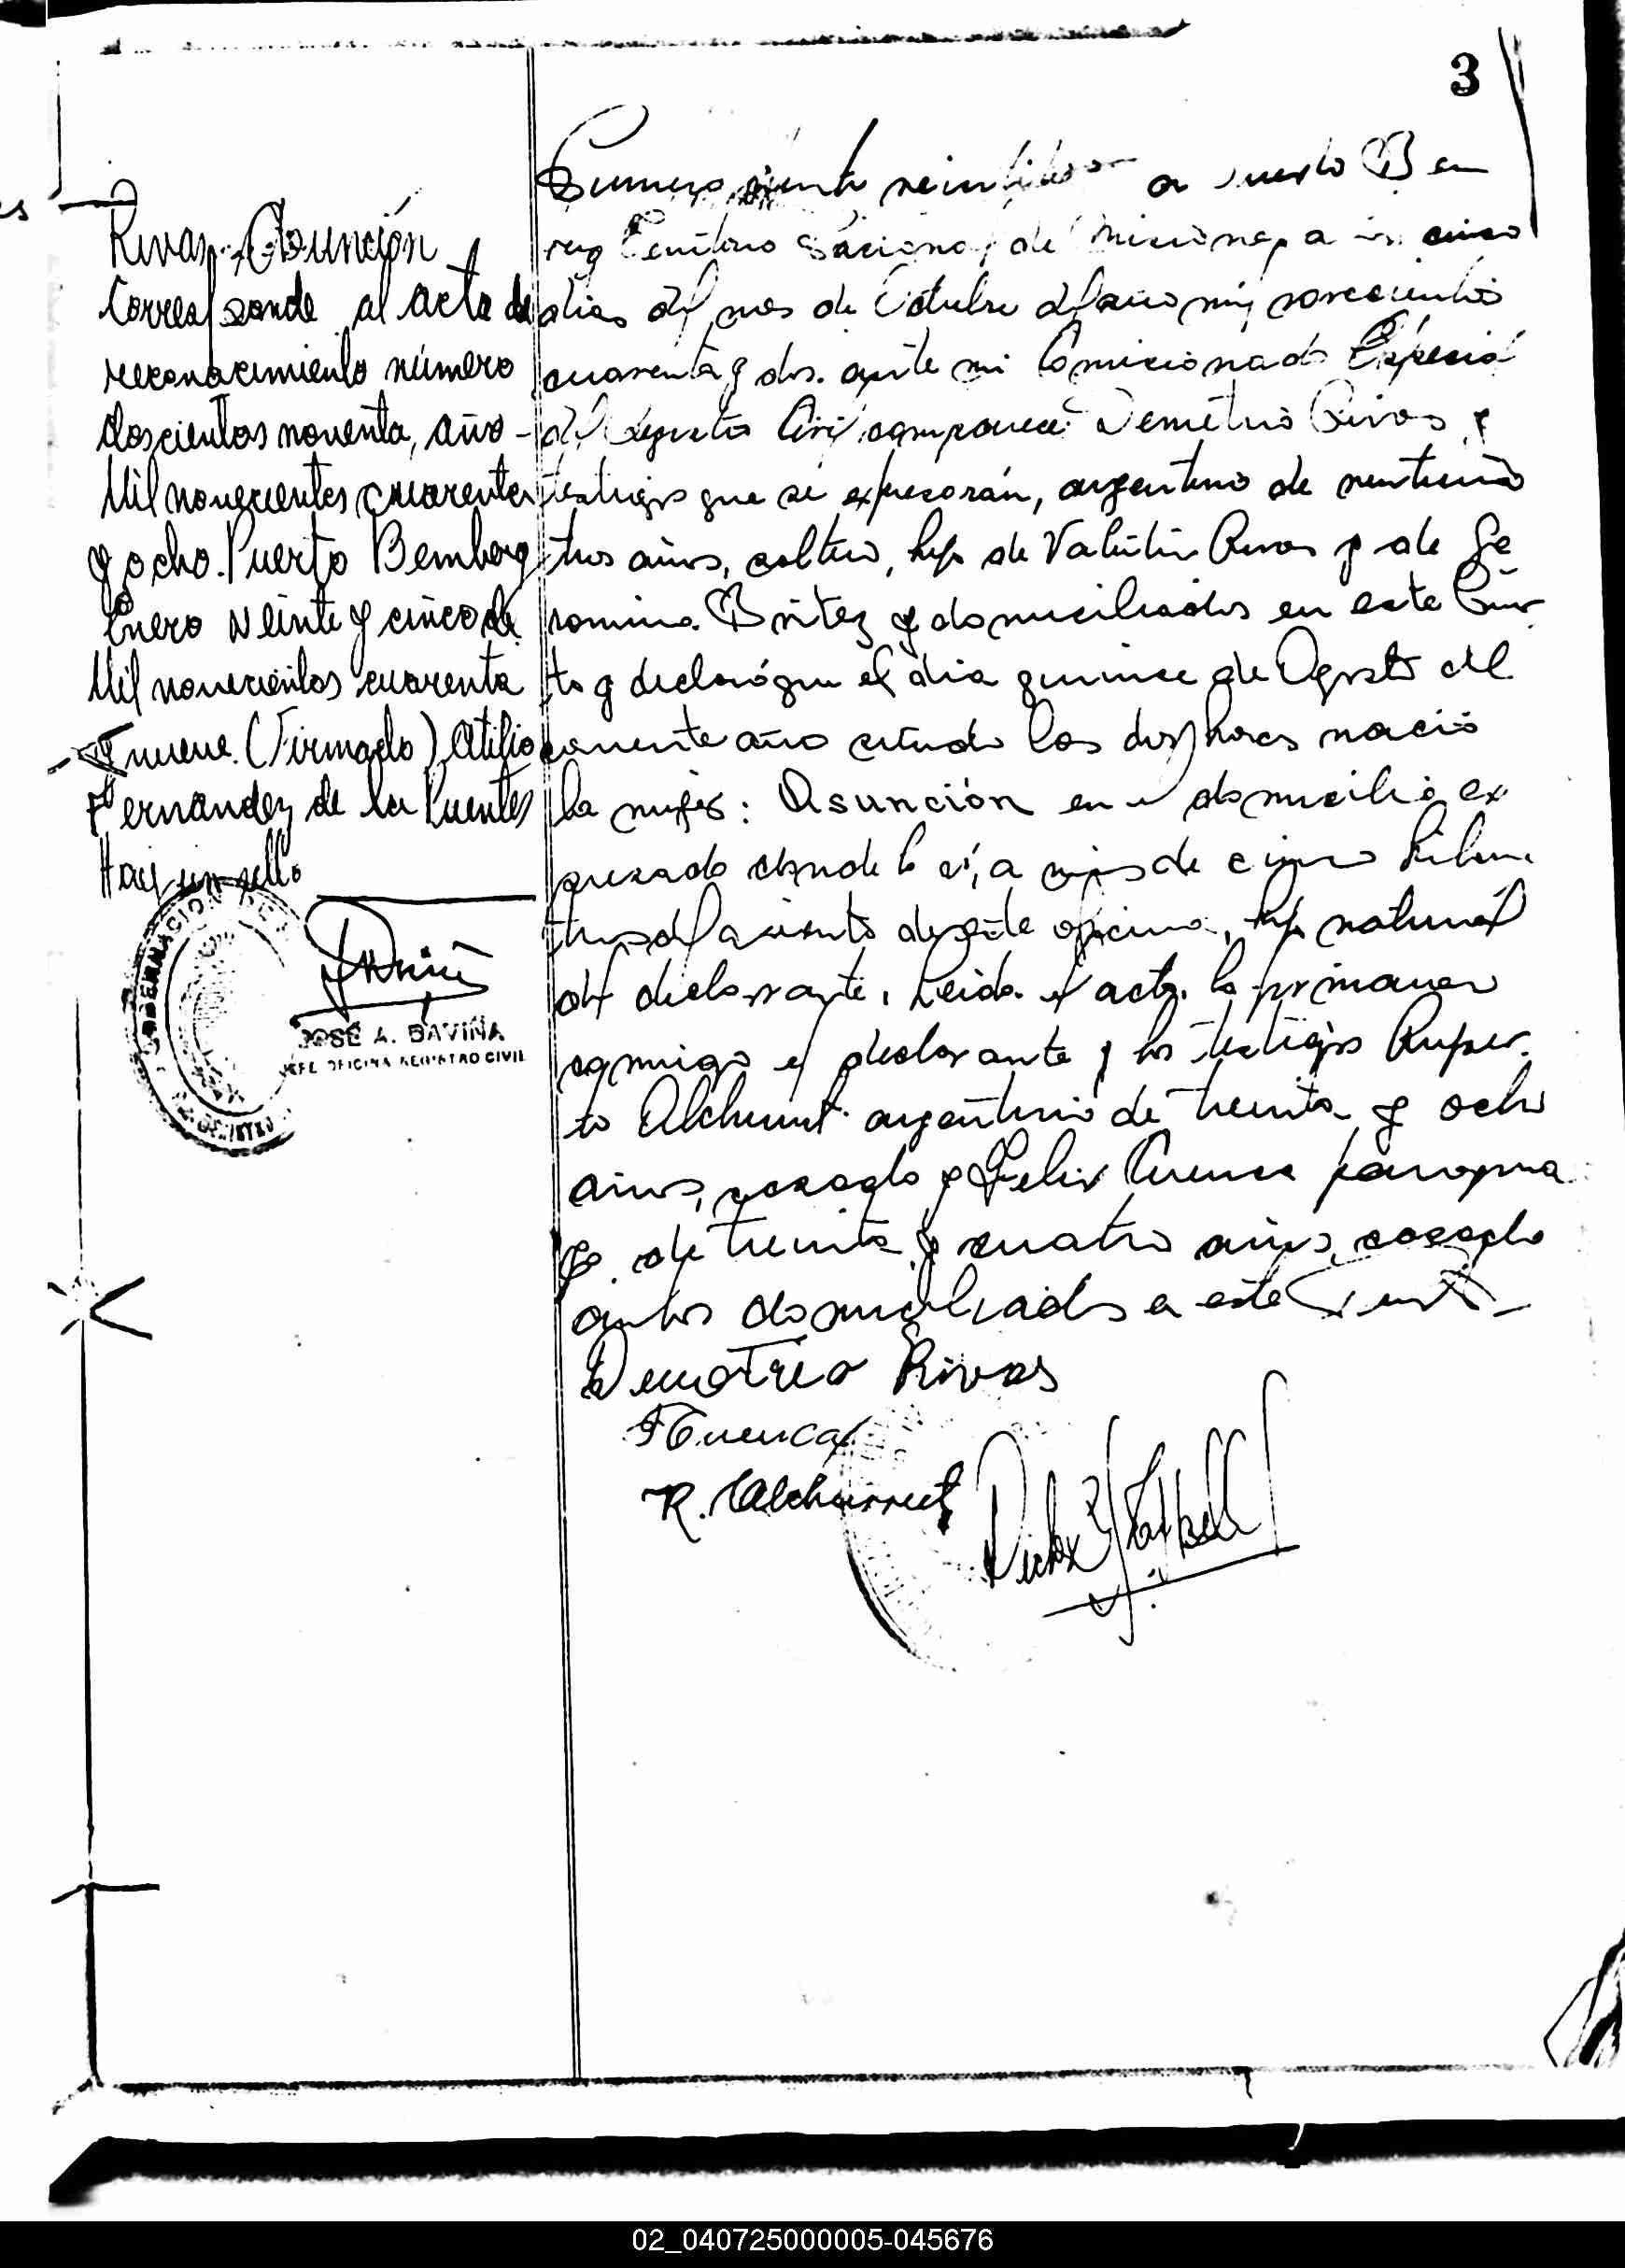 3
Rivas, Asunción
Corresponde al acta de
reconocimiento número
doscientos noventa, año -
Mil novecientos cuarenta
y ocho. Puerto Bemberg
Enero veinte y cinco de
Mil novecientos cuarenta
y nueve. (Firmado) Atilio
Fernandez de la Puentes
Hay un sello
GOBERNACION DE
JOSÉ A. BAVIÑA
JEFE OFICINA REGISTRO CIVIL
Numero ciento veintidos Puerto Bem
berg Territorio Nacional de Misiones, a cinco
dias del mes de Octubre del año mil novecientos
cuarenta y dos. ante mi Comicionado Especial
del Registro Civil comparece: Demetrio Rivas y
testigos que se expresarán, argentino de
tres años, soltero, hijo de Valentin Rivas y de Ge
romina Britez y domiciliados en este Puer
to y declaró que el dia quince de Agosto del
corriente año siendo las dos horas nació
la mujer: Asunción en domicilio ex
presado donde la ví, a más de cinco kilome
tros del asiento de este oficina, hija natural
del declarante. Leida el acta la firmaron
conmigo el declarante y los testigos Ruper
to Alchurrut argentino de treinta y ocho
años, casado y Felix Cuenca paragua
yo de treinta y cuatro años, casado
ambos domiciliados en este Puerto
Demetreo Rivas
F Cuenca
R. Alchurrut